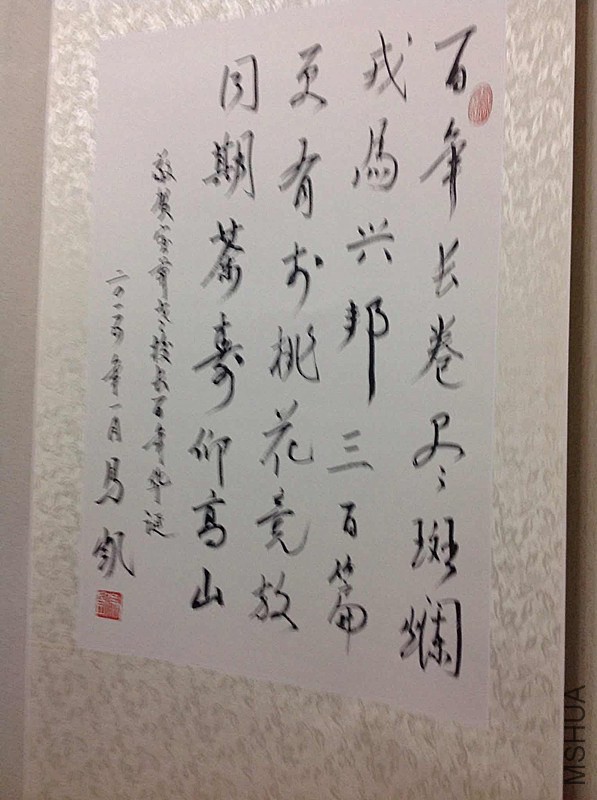 百年长卷尽斑斓
戎馬兴邦三百篇
更有桃花竞放
同期茶寿仰高山
敬贺校长百年华诞
二〇一五年一月 馬凯
MSHUA